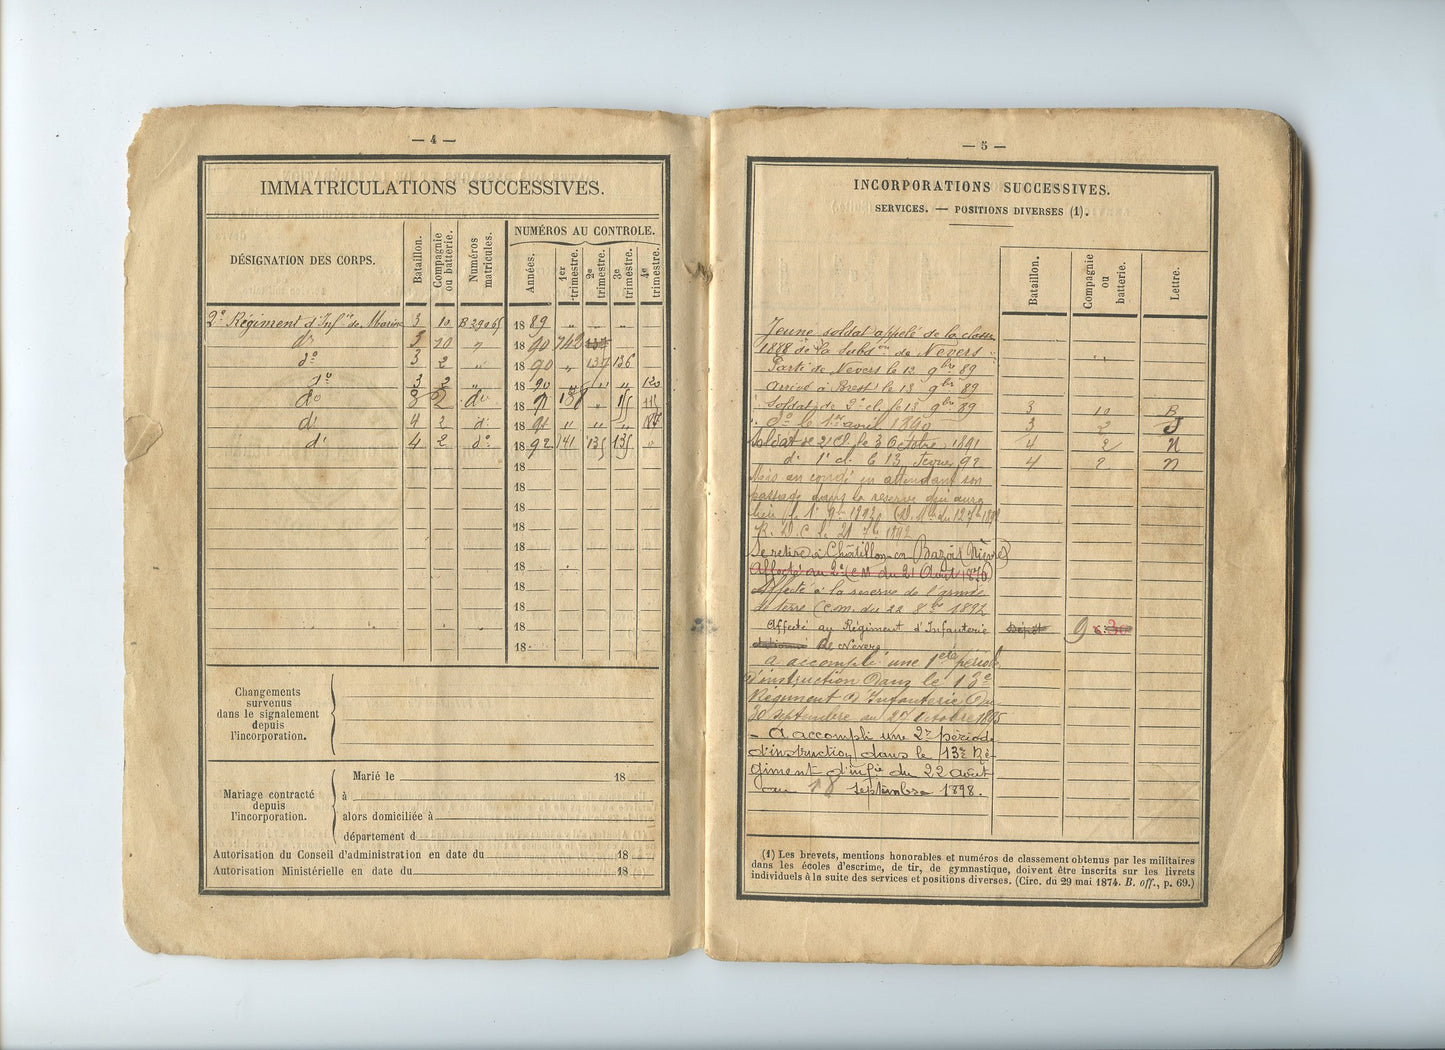 — 4 —
IMMATRICULATIONS SUCCESSIVES.
DÉSIGNATION DES CORPS.
Bataillon.
Compagnie ou batterie.
Numéros matricules.
NUMÉROS AU CONTROLE.
Années.
1er trimestre.
2e trimestre.
3e trimestre.
4e trimestre.
2e Régiment d'Infie de Marine 3 10 B 3906 1889 " " "
do 3 10 " 1890 742
do 3 2 " 1890 " 137 136
do 3 2 " 1890 " " " 120
do 2 do 1891
do 4 2 do 1891 " "
do 4 2 do 1892 141 135 135 "
18
18
18
18
18
18
18
18
18
18
Changements survenus dans le signalement depuis l'incorporation.
Mariage contracté depuis l'incorporation.
Marié le 18
à
alors domiciliée à
département d
Autorisation du Conseil d'administration en date du 18
Autorisation Ministérielle en date du 18
— 5 —
INCORPORATIONS SUCCESSIVES.
SERVICES. — POSITIONS DIVERSES (1).
Bataillon.
Compagnie ou batterie.
Lettre.
Jeune soldat appelé de la classe
1888 de la Subdon de Nevers
Parti de Nevers le 12 9bre 89
Arrivé à Brest le 13 9bre 89
Soldat de 2e cl. le 13 9bre 89 3 10 B
do le 1er avril 1890 3 2 J
Soldat de 2e Cl. le 3 Octobre 1891 4 2 N
de 1e cl. le 13 92 4 2 N
Mis en congé en attendant son
passage dans la réserve qui aura
lieu le 1er
Se retire à Châtillon en Bazois (Nièvre)
Affecté au 2e (CM du 21 Août 1876)
Affecté à la réserve de l'armée
de terre (C.m. du 22 8bre 1892
Affecté au Régiment d'Infanterie 9
de Nevers
a accompli une 1ere période
d'instruction dans le 13e
Régiment d'Infanterie Du
30 septembre au 27 octobre 1895
— A accompli une 2e période
d'instruction dans le 13e Ré-
giment d'infie du 22 août
au 18 septembre 1898.
(1) Les brevets, mentions honorables et numéros de classement obtenus par les militaires
dans les écoles d'escrime, de tir, de gymnastique, doivent être inscrits sur les livrets
individuels à la suite des services et positions diverses. (Circ. du 29 mai 1874. B. off., p. 69.)